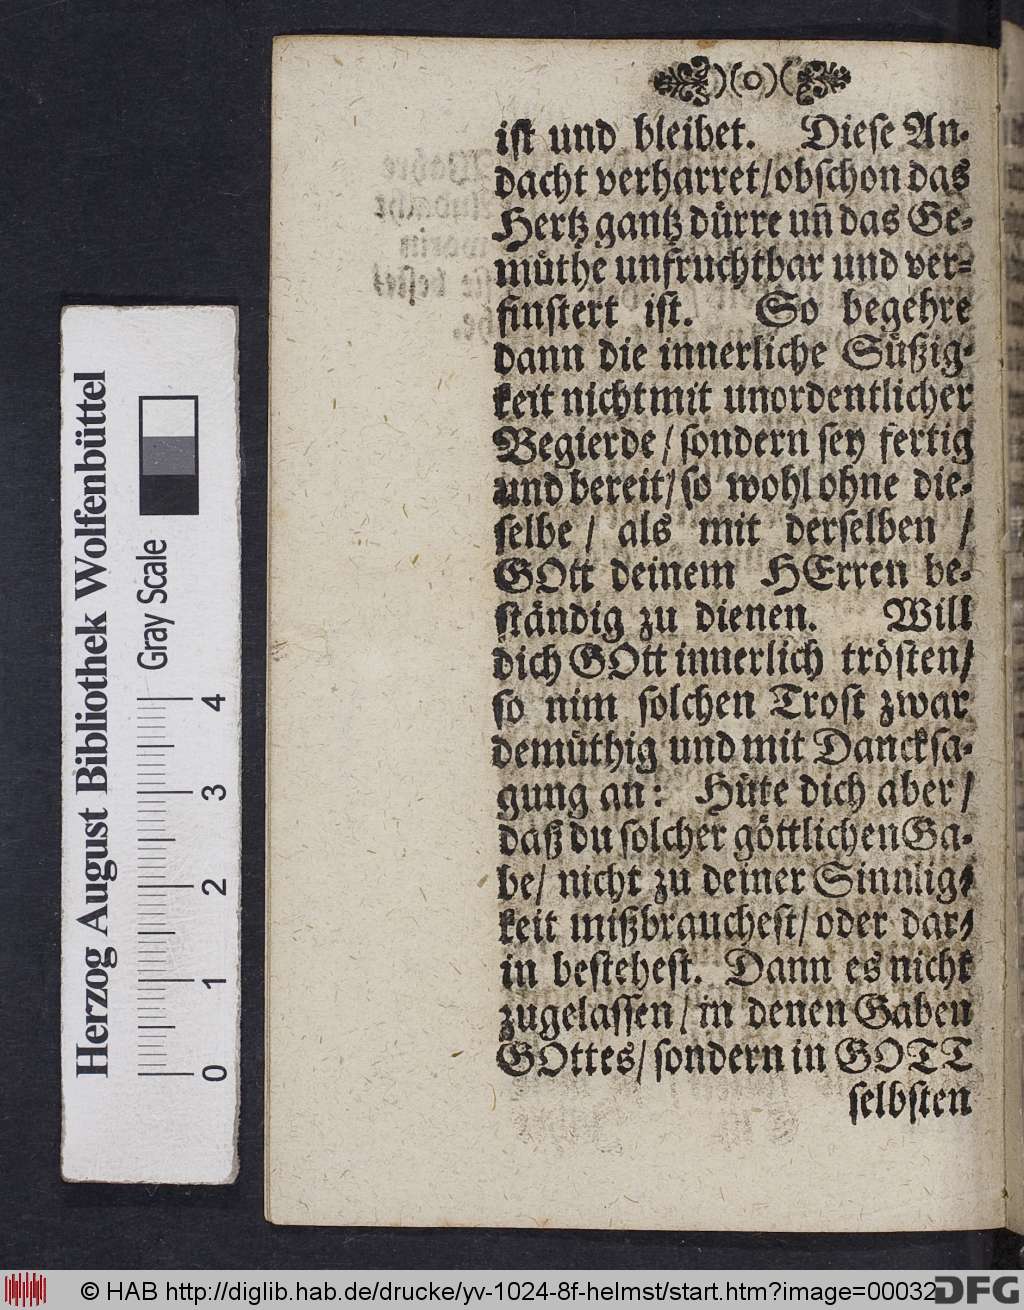 )(o)(
ist und bleibet. Diese An-
dacht verharret/obschon das
Hertz gantz dürre uñ das Ge-
müthe unfruchtbar und ver-
finstert ist. So begehre
dann die innerliche Süßig-
keit nicht mit unordentlicher
Begierde/sondern sey fertig
und bereit/so wohl ohne die-
selbe/ als mit derselben /
GOtt deinem HErren be-
ständig zu dienen. Will
dich GOtt innerlich trösten/
so nim solchen Trost zwar
demüthig und mit Dancksa-
gung an: Hüte dich aber/
daß du solcher göttlichen Ga-
be/ nicht zu deiner Sinnlig-
keit mißbrauchest/oder dar-
in bestehest. Dann es nicht
zugelassen/in denen Gaben
GOttes/sondern in GOTT
selbsten
Herzog August Bibliothek Wolfenbüttel
Gray Scale
0 1 2 3 4
© HAB http://diglib.hab.de/drucke/yv-1024-8f-helmst/start.htm?image=00032
DFG